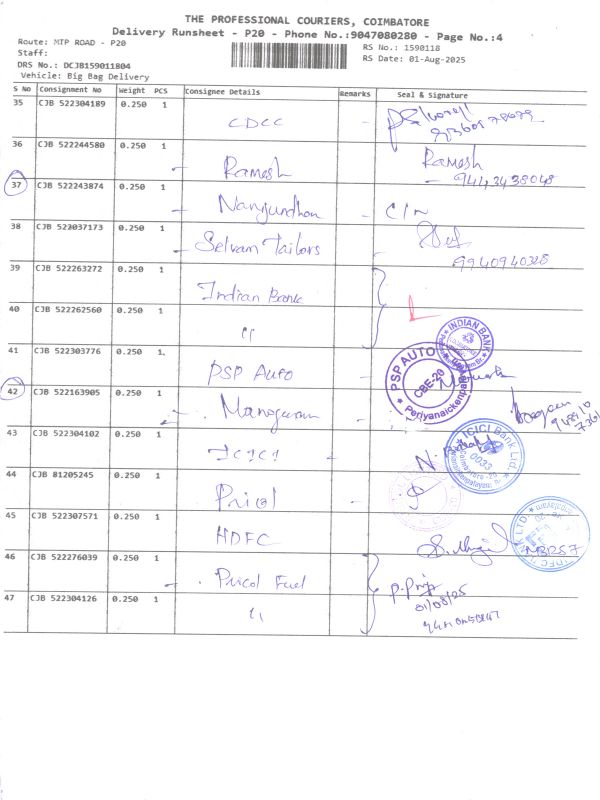 THE PROFESSIONAL COURIERS, COIMBATORE
Delivery Runsheet - P20 - Phone No.:9047080280 - Page No.:4
Route: MTP ROAD - P20
RS No.: 1590118
Staff:
RS Date: 01-Aug-2025
DRS No.: DCJB159011804
Vehicle: Big Bag Delivery
S No Consignment No Weight PCS Consignee Details Remarks Seal & Signature
35 CJB 522304189 0.250 1 CDCC
36 CJB 522244580 0.250 1 Ramesh Ramesh
9443438048
37 CJB 522243874 0.250 1 Nanjundhan
38 CJB 522037173 0.250 1 Selvam Tailors
9940940328
39 CJB 522263272 0.250 1 Indian Bank
INDIAN BANK
40 CJB 522262560 0.250 1 "
41 CJB 522303776 0.250 1. PSP Auto
PSP AUTO
CBE-20
Periyanaickenpalayam
42 CJB 522163905 0.250 1
43 CJB 522304102 0.250 1 ICICI
ICICI Bank Ltd.
0033
44 CJB 81205245 0.250 1 Pricol
45 CJB 522307571 0.250 1 HDFC
HDFC BANK LTD.
46 CJB 522276039 0.250 1 Pricol Fuel
01/08/25
47 CJB 522304126 0.250 1 "